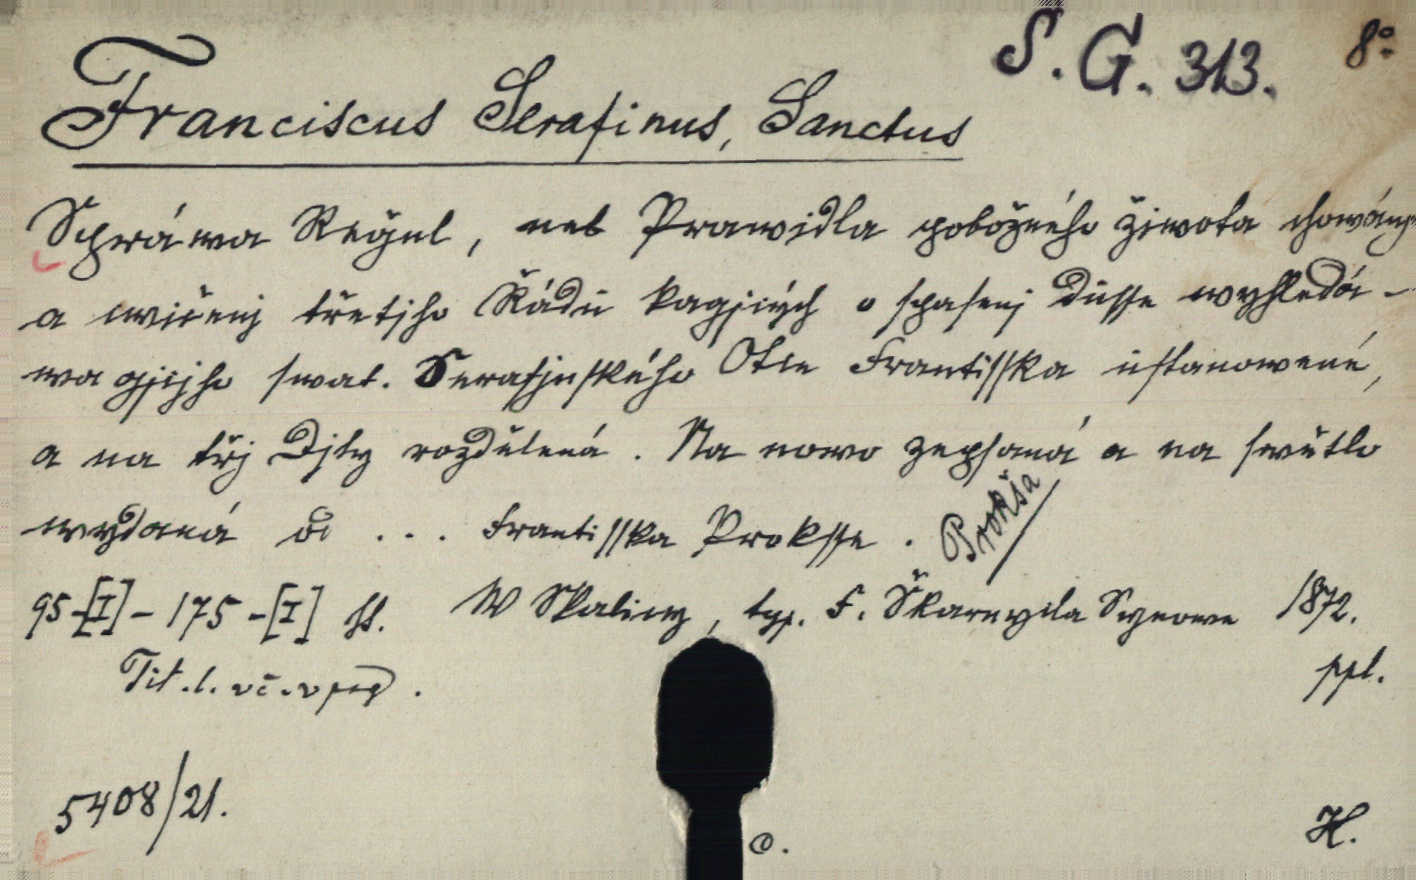 S. G. 313. 8°
Franciscus Serafinus, Sanctus
Spráwa Regul, neb Prawidla pobožného žiwota chowánj
a cwičenj třetjho Řádu kagjcých o spasenj dusse wyhledá-
wagjcýho swat. Serafjnského Otce Frantisska ustanowené,
a na třj Djly rozdělená. Na nowo zepsaná a na swětlo
wydaná od ... Frantisska Proksse. Prokša
95-[I]-175-[I] ss. W Skalicy, typ. F. Škarnycla Synowé 1872.
Tit. l. vč. v pag. ppl.
5408/21.
H.
c.